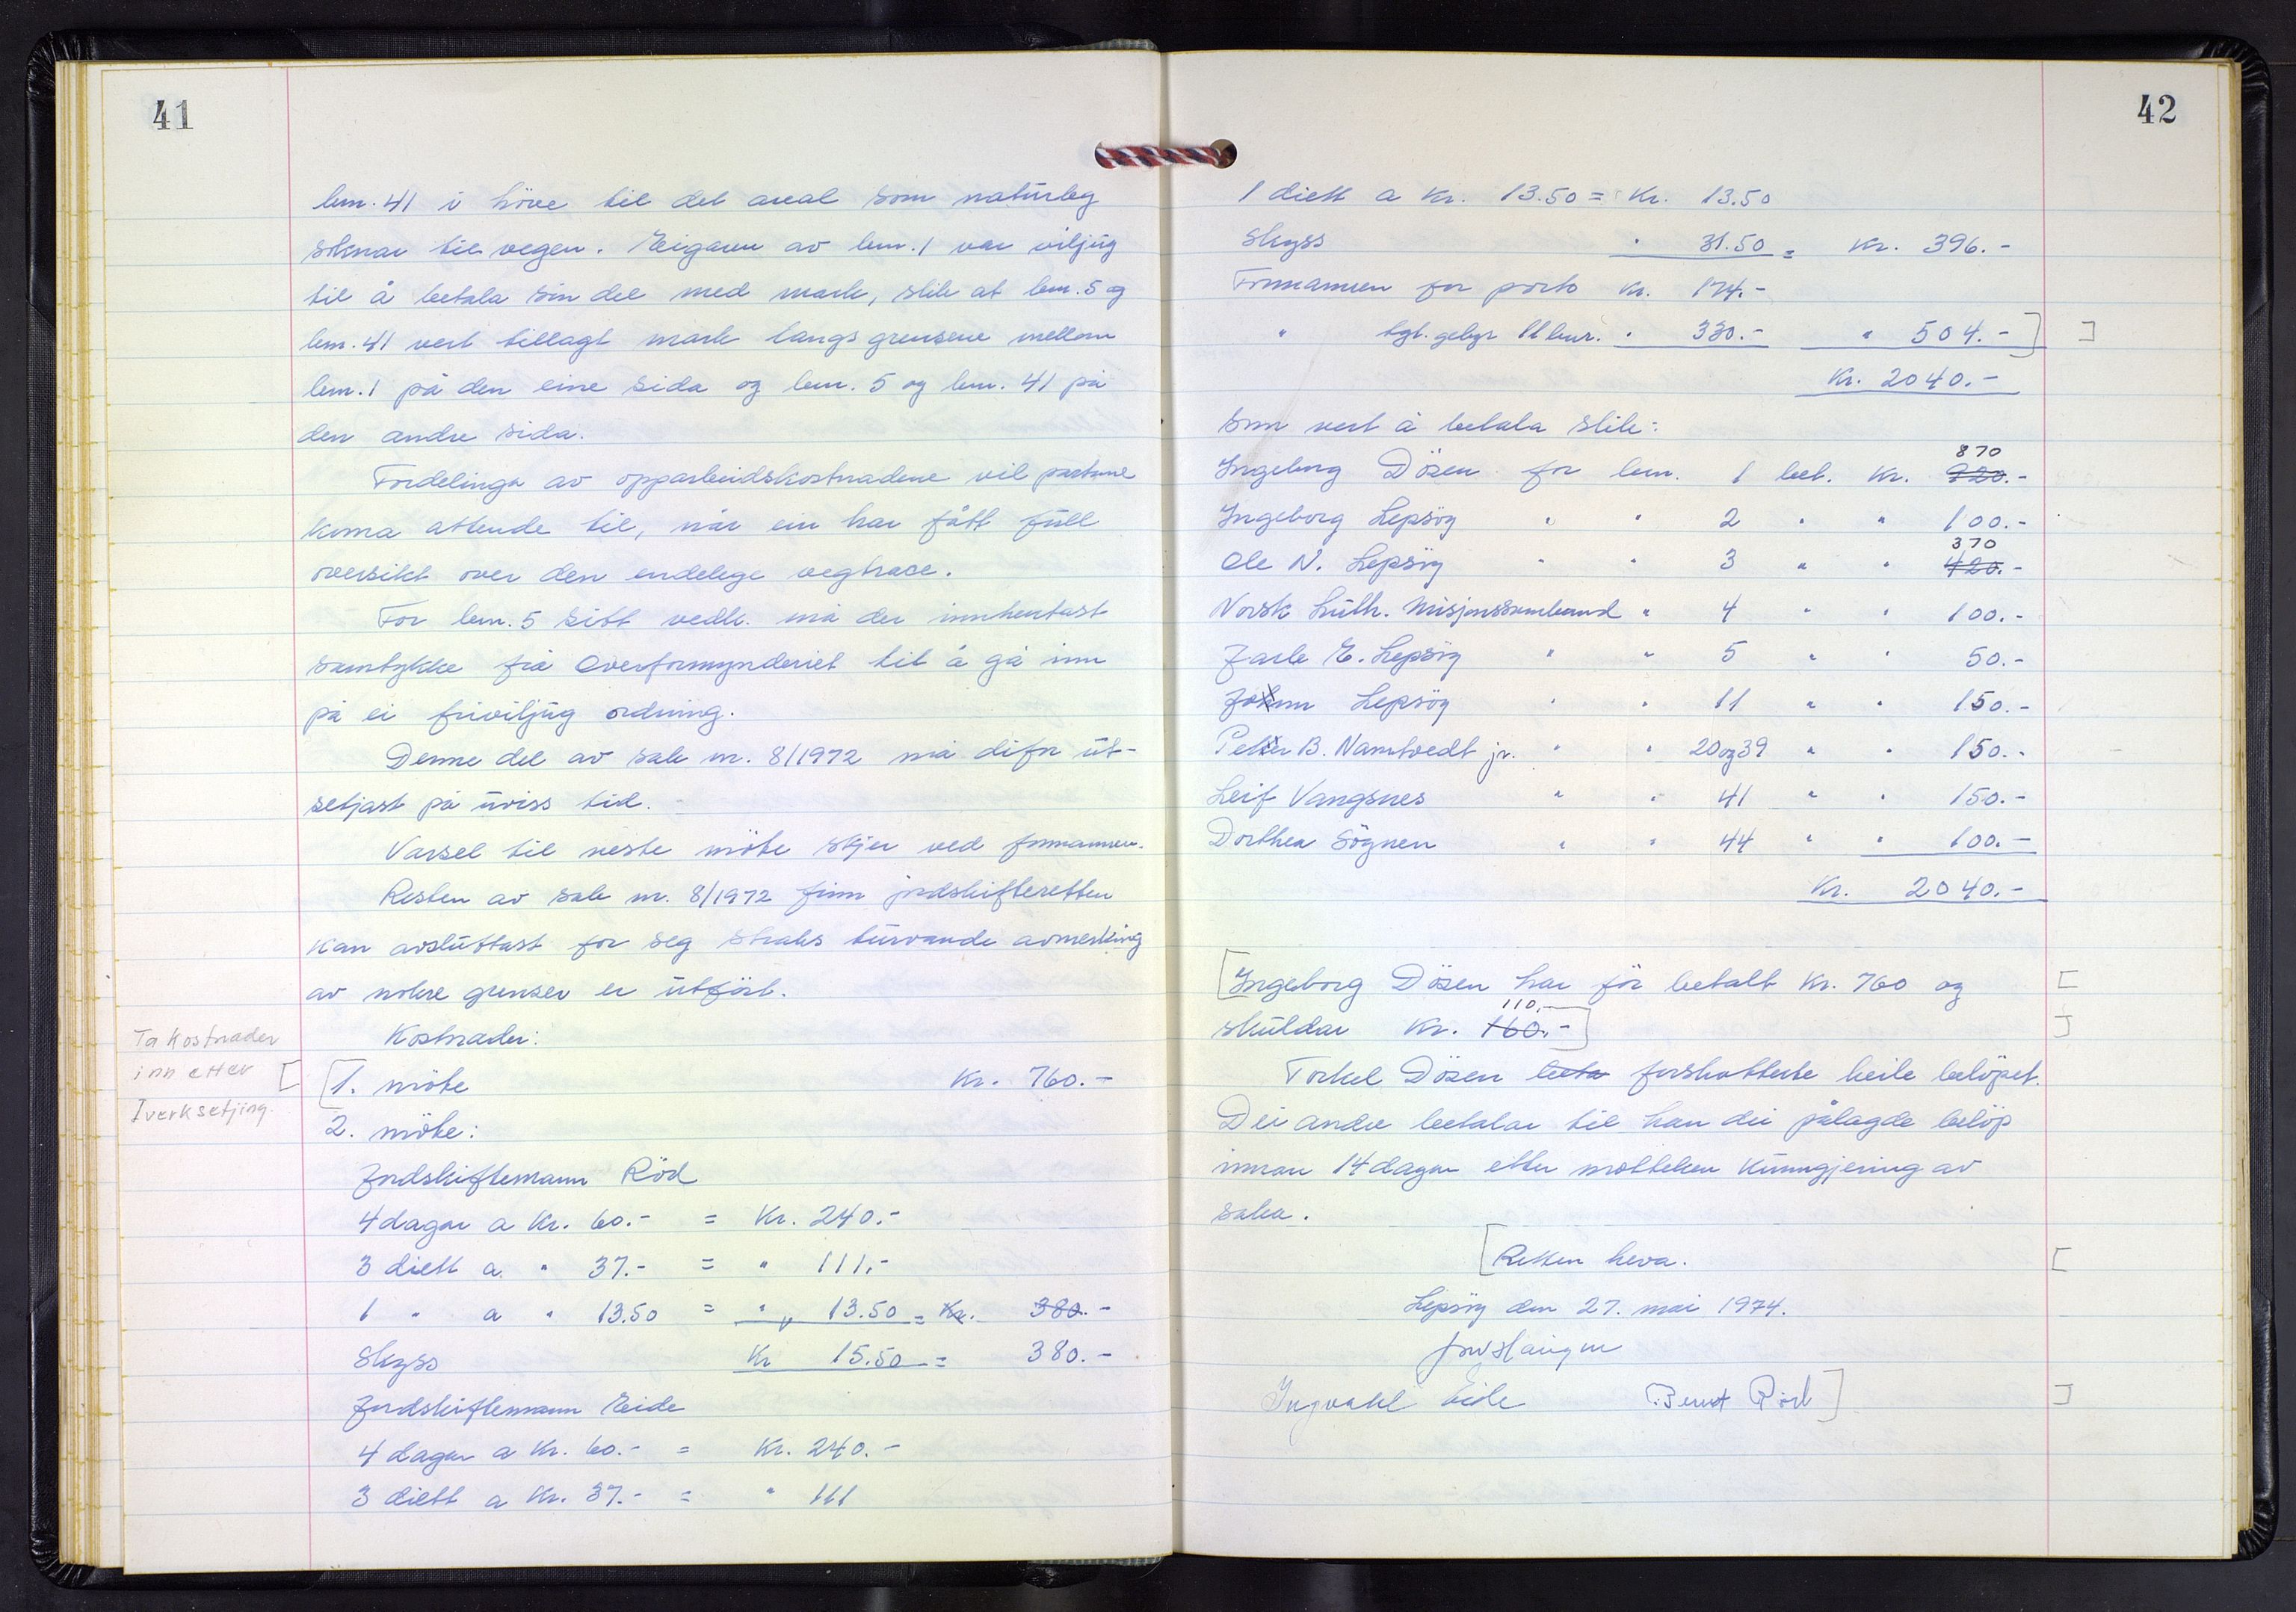 41
bnr. 41 i höve til det areal som naturleg
soknar til vegen. Eigaren av bnr. 1 var viljug
til å betala sin del med mark, slik at bnr. 5 og
bnr. 41 vert tillagt mark langs grensene mellom
bnr. 1 på den eine sida og bnr. 5 og bnr. 41 på
den andre sida.
Fordelinga av opparbeidskostnadene vil partane
koma attende til, når ein har fått full
oversikt over den endelege vegtrace.
For bnr. 5 sitt vedk. må der innhentast
samtykke frå Overformynderiet til å gå inn
på ei friviljug ordning.
Denne del av sak nr. 8/1972 må difor ut-
setjast på uviss tid.
Varsel til neste möte skjer ved formannen.
Resten av sak nr. 8/1972 finn jordskifteretten
kan avsluttast for seg straks turvande avmerking
av nokre grenser er utfört.
Kostnader:
Ta kostnader
inn etter
Iverksetjing.
[ [1. möte Kr. 760.-
2. möte:
Jordskiftemann Röd
4 dagar a Kr. 60.- = Kr. 240.-
3 diett a " 37.- = " 111.-
1 " a " 13.50 = " 13.50 = Kr. 380.-
Skyss Kr 15.50 = 380.-
Jordskiftemann Eide
4 dagar a Kr. 60.- = Kr. 240.-
3 diett a Kr. 37.- = " 111
42
1 diett a Kr. 13.50 = Kr. 13.50
Skyss " 31.50 = Kr. 396.-
Formannen for porto Kr. 174.-
" tgl. gebyr 11 bnr. " 330.- " 504.-] ]
Kr. 2040.-
som vert å betala slik:
870
Ingeborg Dösen for bnr. 1 bet. Kr. 920.-
Ingeborg Lepsöy " " 2 " " 100.-
370
Ole N. Lepsöy " " 3 " " 420.-
Norsk Luth. Misjonssamband " 4 " " 100.-
Jarle E. Lepsöy " " 5 " " 50.-
Johnn Lepsöy " " 11 " " 150.-
Peter B. Namtvedt jr. " " 20 og 39 " " 150.-
Leif Vangsnes " " 41 " " 150.-
Dorthea Sögnen " " 44 " " 100.-
Kr. 2040.-
[Ingeborg Dösen har för betalt Kr. 760 og [
110.-
skuldar Kr. 160.-] ]
Torkel Dösen beta forskotterte heile belöpet.
Dei andre betalar til han dei pålagde belöp
innan 14 dagar etter motteken kunngjering av
saka.
[Retten heva. [
Lepsöy den 27. mai 1974.
Ingvald Eide Bernt Röd] ]